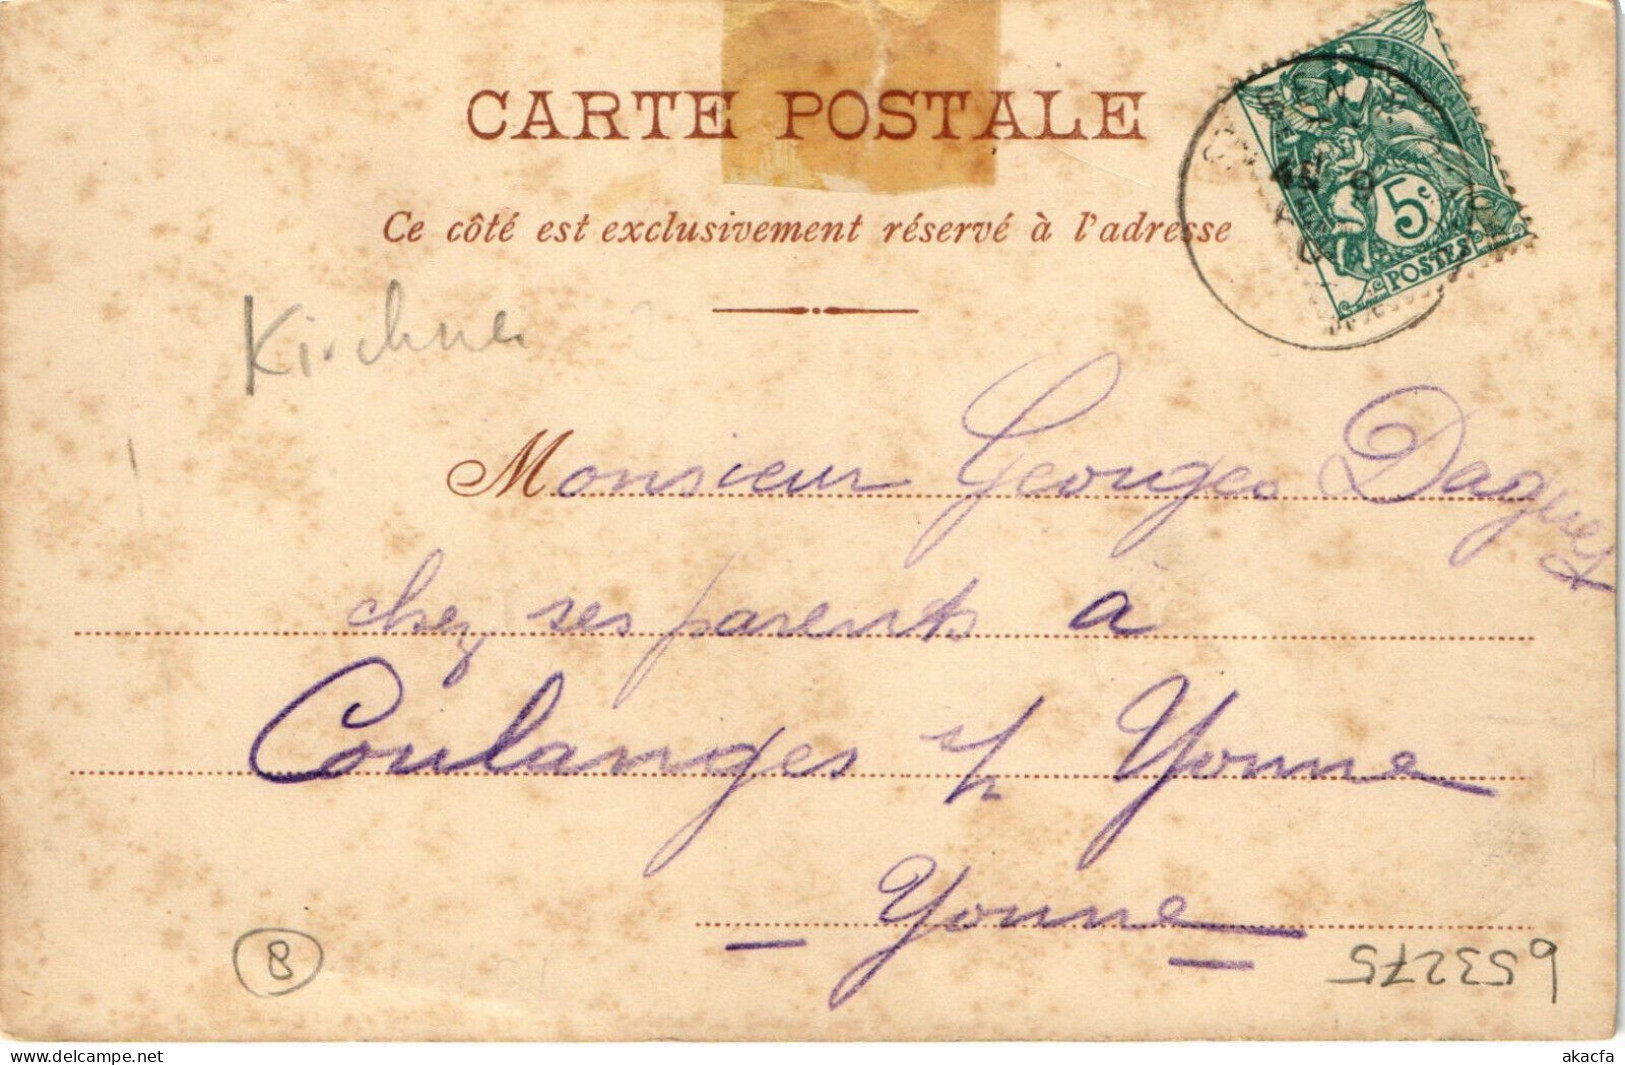 CARTE POSTALE
Ce côté est exclusivement réservé à l'adresse
FRANÇAISE
5c
POSTES
Kirchner
Monsieur Georges Daguet
chez ses parents à
Coulanges s/ Yonne
Yonne
8
653275
www.delcampe.net
akacfa